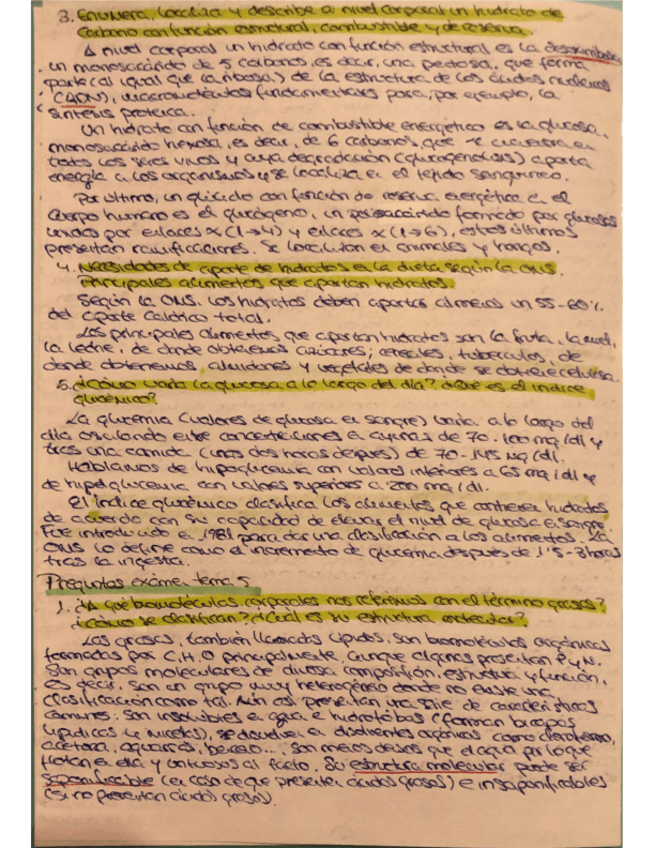 3. Enumera, localiza y describe a nivel corporal un hidrato de
carbono con función estructural, combustible y de reserva.
A nivel corporal un hidrato con función estructural es la desoxirribosa
un monosacárido de 5 carbonos, es decir, una pentosa, que forma
parte (al igual que la ribosa) de la estructura de los ácidos nucleicos
(ADN), macromoléculas fundamentales para, por ejemplo, la
síntesis proteica.
Un hidrato con función de combustible energético es la glucosa,
monosacárido hexosa, es decir, de 6 carbonos que se encuentra en
todos los seres vivos y cuya degradación (glucogenólisis) aporta
energía a los organismos y se localiza en el tejido sanguíneo.
Por último, un glúcido con función de reserva energética en el
cuerpo humano es el glucógeno, un polisacárido formado por glucosas
unidas por enlaces α(1→4) y enlaces α(1→6), estos últimos
presentan ramificaciones. Se localizan en animales y hongos.
4. Necesidades de aporte de hidratos en la dieta según la OMS.
Principales alimentos que aportan hidratos.
Según la OMS, los hidratos deben aportar al menos un 55-60%
del aporte calórico total.
Los principales alimentos que aportan hidratos son la fruta, la miel,
la leche, de donde obtenemos azúcares; cereales, tubérculos, de
donde obtenemos almidones y vegetales de donde se obtiene celulosa.
5. ¿Cómo varía la glucosa a lo largo del día? ¿Qué es el índice
glucémico?
La glucemia (valores de glucosa en sangre) varía a lo largo del
día oscilando entre concentraciones en ayunas de 70-100 mg/dl y
tras una comida (unas dos horas después) de 70-145 mg/dl.
Hablamos de hipoglucemia con valores inferiores a 65 mg/dl y
de hiperglucemia con valores superiores a 200 mg/dl.
El índice glucémico clasifica los alimentos que contienen hidratos
de acuerdo con su capacidad de elevar el nivel de glucosa en sangre.
Fue introducido en 1981 para dar una clasificación a los alimentos. La
OMS lo define como el incremento de glucemia después de 1'5-3 horas
tras la ingesta.
Preguntas examen tema 5
1. ¿A qué biomoléculas corporales nos referimos con el término grasas?
¿Cómo se clasifican? ¿Cuál es su estructura molecular?
Las grasas, también llamadas lípidos, son biomoléculas orgánicas
formadas por C, H, O principalmente, aunque algunas presentan P y N.
Son grupos moleculares de diversa composición, estructura y función,
es decir, son un grupo muy heterogéneo donde no existe una
clasificación como tal. Aún así presentan una serie de características
comunes: Son insolubles en agua e hidrófobas (forman bicapas
lipídicas y micelas), se disuelven en disolventes orgánicos como cloroformo,
acetona, aguarrás, benceno... Son menos densos que el agua por lo que
flotan en ella y untuosos al tacto. Su estructura molecular puede ser
saponificable (en caso de que presenten ácidos grasos) e insaponificables
(si no presentan ácidos grasos).